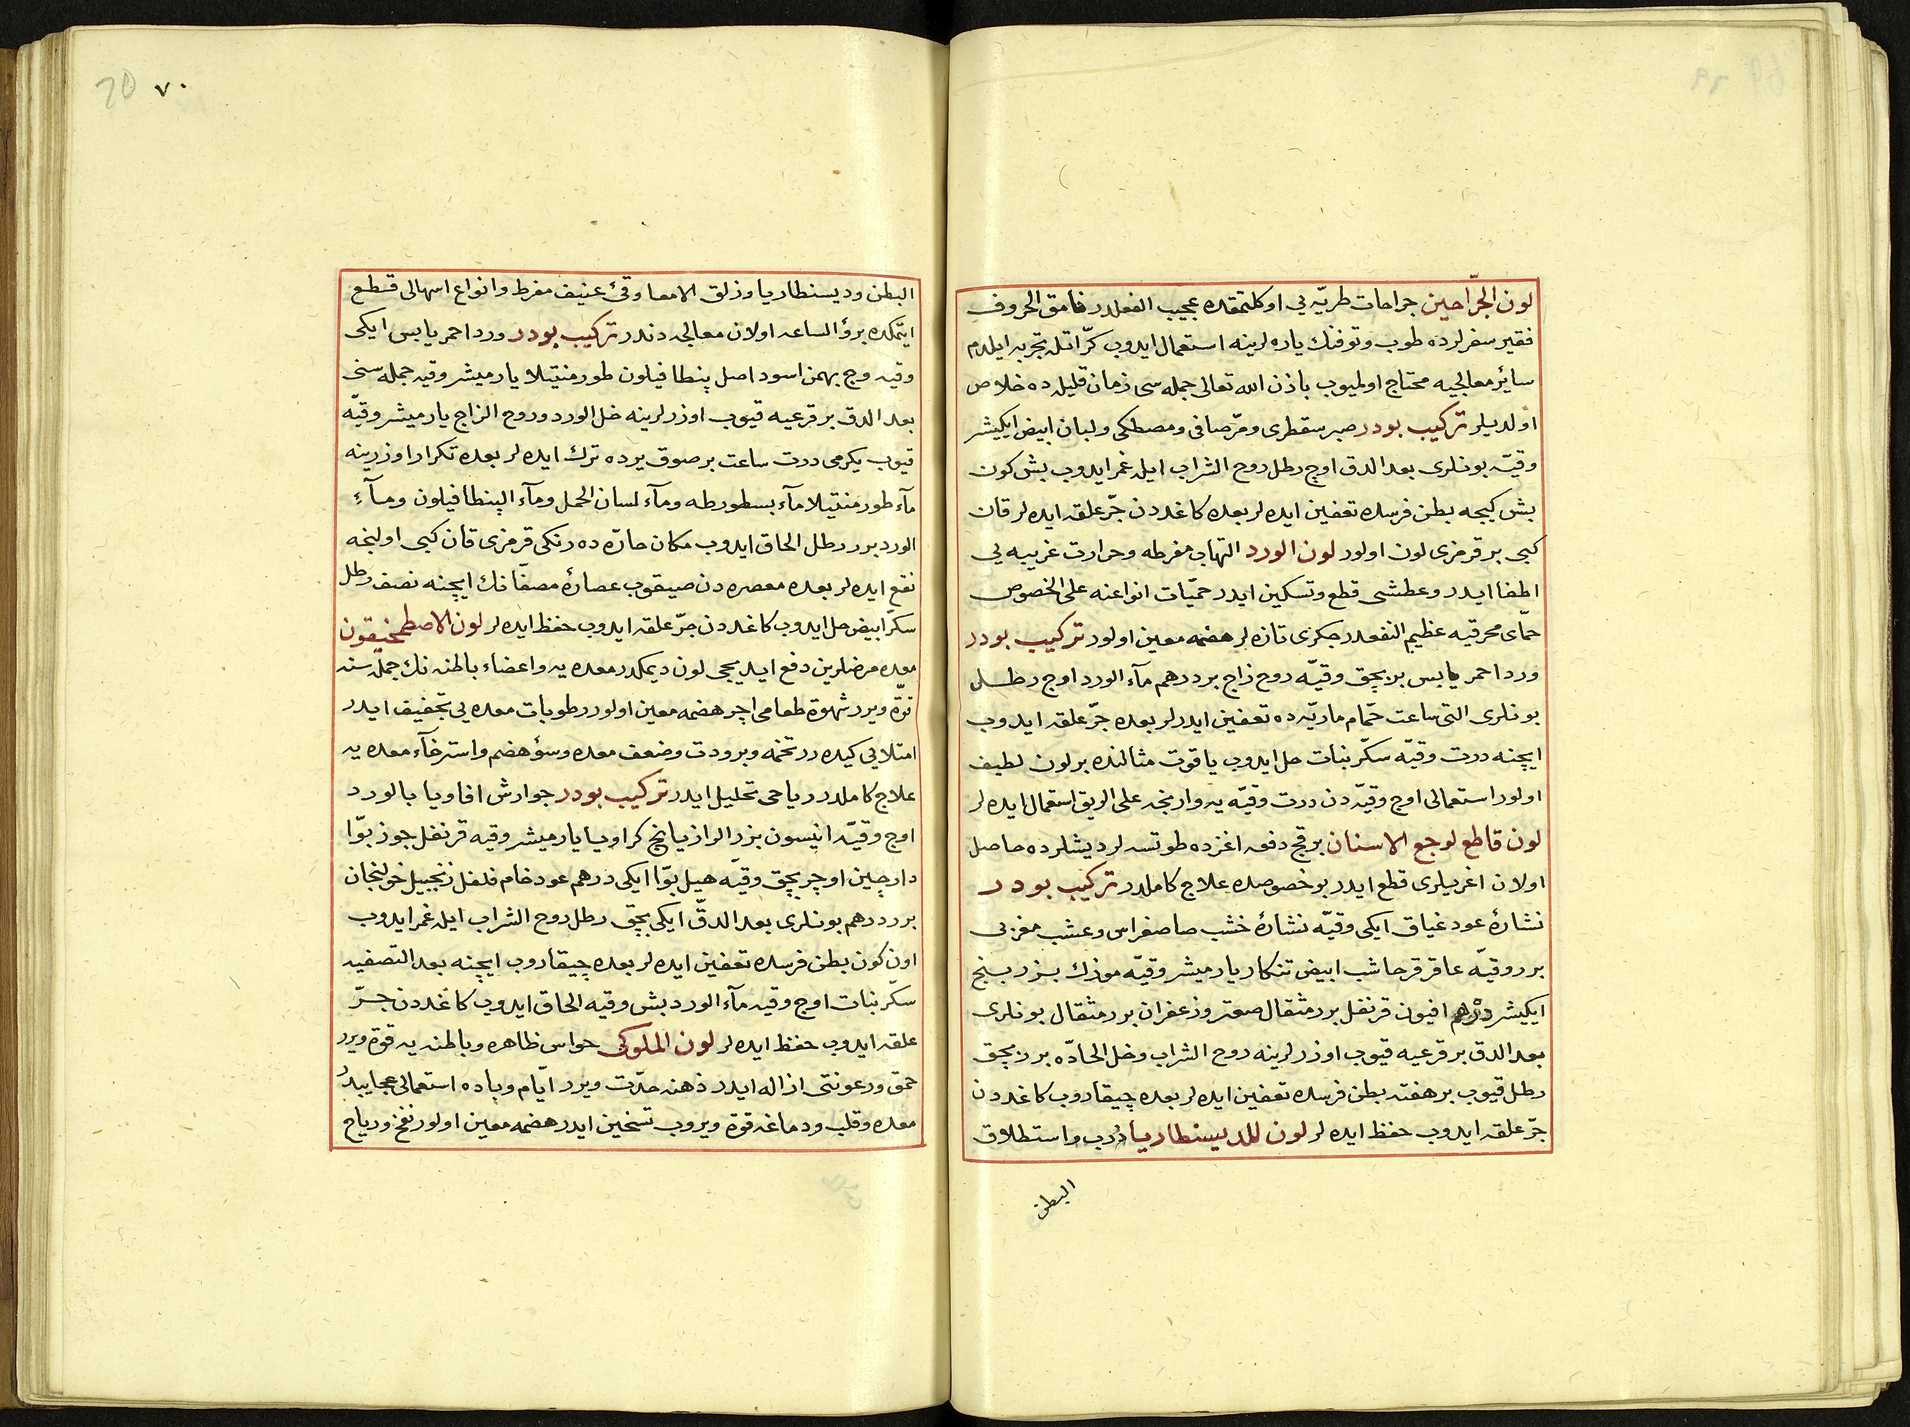 لون الجرّاحين جراحات طريّه يى اوكلتمقده عجيب الفعلدر فامق الحروف
فقير سفرلرده طوب وتوفنك ياره لرينه استعمال ايدوب كرّاتله تجربه ايلدم
سائر معالجيه محتاج اولميوب باذن الله تعالى جمله سى زمان قليله ده خلاص
اولديلر تركيب بودر صبر سقطرى ومرّ صافى ومصطكى ولبان ابيض ايكيشر
وقيّه بونلرى بعد الدق اوچ رطل روح الشراب ايله غمر ايدوب بش كون
بش كيجه بطن فرسده تعفين ايده لر بعده كاغددن جرّ علقه ايده لر قان
كبى بر قرمزى لون اولور لون الورد التهاب مفرطه وحرارت غريبه يى
اطفا ايدر وعطشى قطع وتسكين ايدر حميّات انواعنه على الخصوص
حمّاى محرقيه عظيم النفعدر جكرى تازه لر هضمه معين اولور تركيب بودر
ورد احمر يابس بر بچق وقيّه روح زاج برر درهم مآء الورد اوچ رطل
بونلرى التى ساعت حمّام ماريّه ده تعفين ايدرلر بعده جرّ علقه ايدوب
ايچنه درت وقيّه سكّر نبات حل ايدوب ياقوت مثالنده بر لون لطيف
اولور استعمالى اوچ وقيّه دن درت وقيّه يه وارنجه على الريق استعمال ايده لر
لون قاطع لوجع الاسنان بر قچ دفعه اغزده طوتسه لر ديشلرده حاصل
اولان اغريلرى قطع ايدر بو خصوصده علاج كاملدر تركيب بودر
نشارۀ عود غياق ايكى وقيّه نشارۀ خشب صاصفراس وعشب مغربى
برر وقيّه عاقر قرحا شب ابيض تنكار يارميشر وقيّه موزك بزر بنج
ايكيشر درهم افيون قرنفل برر مثقال صعتر وزعفران برر مثقال بونلرى
بعد الدق بر قرعيه قيوب اوزرلرينه روح الشراب وخل الحادّه برر بچق
رطل قيوب بر هفته بطن فرسده تعفين ايده لر بعده چيقاروب كاغددن
جرّ علقه ايدوب حفظ ايده لر لون للديسنطاريا ذرب واستطلاق
البطن
٧٠
70
البطن وديسنطاريا وزلق الامعا وقئ عنيف مفرط وانواع اسهالى قطع
ايتمكده برؤ الساعه اولان معالجه دندر تركيب بودر ورد احمر يابس ايكى
وقيه وج بهمن اسود اصل پنطافيلون طورمنتيلا يارميشر وقيه جمله سنى
بعد الدق بر قرعيه قيوب اوزرلرينه خل الورد وروح الزاج يارميشر وقيّه
قيوب يكرمى درت ساعت بر صوق يرده ترك ايده لر بعده تكرار اوزرينه
مآء طورمنتيلا مآء بسطورطه ومآء لسان الحمل ومآء الپنطافيلون ومآء
الورد برر رطل الحاق ايدوب مكان حارّه ده رنكى قرمزى قان كبى اولنجه
نقع ايده لر بعده معصره دن صيقوب عصارۀ مصفّانك ايچنه نصف رطل
سكّر ابيض حل ايدوب كاغددن جرّ علقه ايدوب حفظ ايده لر لون الاصطمخيقون
معده مرضلرين دفع ايديجى لون ديمكدر معده يه واعضاء باطنه نك جمله سنه
قوّة ويرر شهوة طعامى اچر هضمه معين اولور رطوبات معده يى تجفيف ايدر
امتلايى كيده رر تخمه وبرودت وضعف معده وسؤ هضم واسترخآء معده يه
علاج كاملدر رياحى تحليل ايدر تركيب بودر جوارش افاويا بالورد
اوچ وقيّه انيسون بزر الرازيانج كراويا يارميشر وقيه قرنفل جوز بوّا
دارچين اوچر بچق وقيّه هيل بوّا ايكى درهم عود خام فلفل زنجبيل خولنجان
برر درهم بونلرى بعد الدقّ ايكى بچق رطل روح الشراب ايله غمر ايدوب
اون كون بطن فرسده تعفين ايده لر بعده چيقاروب ايچنه بعد التصفيه
سكّر نبات اوچ وقيه مآء الورد بش وقيه الحاق ايدوب كاغددن جرّ
علقه ايدوب حفظ ايده لر لون الملوكى حواس ظاهره وباطنه يه قوّة ويرر
حمق ورعونتى ازاله ايدر ذهنه حدّت ويرر ايّام وباده استعمالى عجايبدر
معده وقلب ودماغه قوّة ويروب تسخين ايدر هضمه معين اولور نفخ ورياح